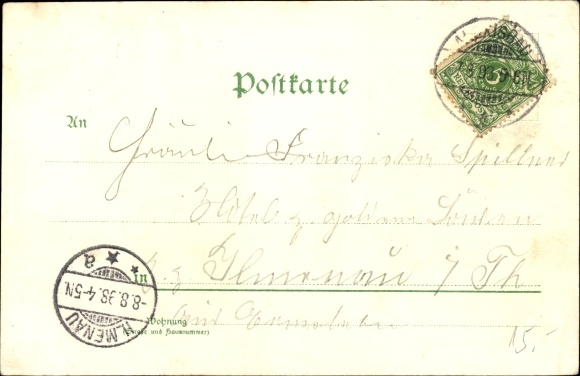 Postkarte
An
Fräulein Franziska Spillner
Hôtel z. goldene Löwen
in Ilmenau i/Th
Wohnung
(Straße und Hausnummer)
ILMENAU
-8.8.98.4-5N.
a
5
15.-